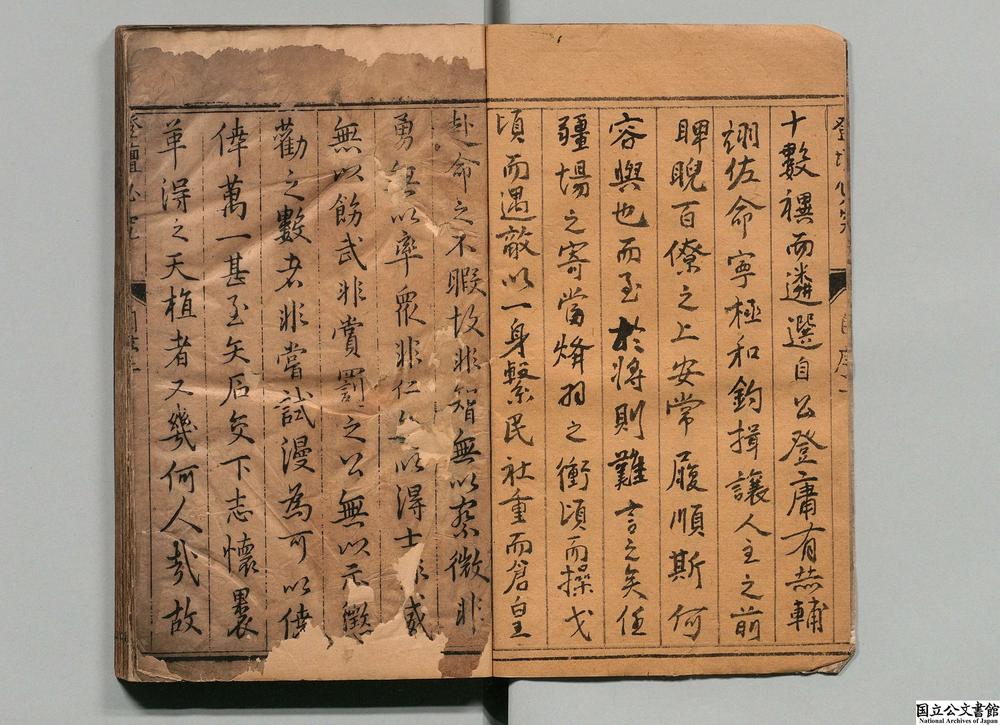 十數襈而遴選自公登庸有恭輔
翊佐命寧極和鈞揖讓人主之前
睥睨百僚之上安常履順斯何
容與也而至於將則難言之矣任
疆場之寄當烽羽之衝頃而操戈
頃而遇敵以一身繫民社重而倉皇
赴命之不暇故非智無以察微非
勇無以率眾非仁無以得士非威
無以飭武非賞罰之公無以示懲
勸之數者非嘗試漫為可以僥
倖萬一甚至矢石交下志懷裹
革得之天植者又幾何人哉故
登壇必究
國立公文書館
National Archives of Japan